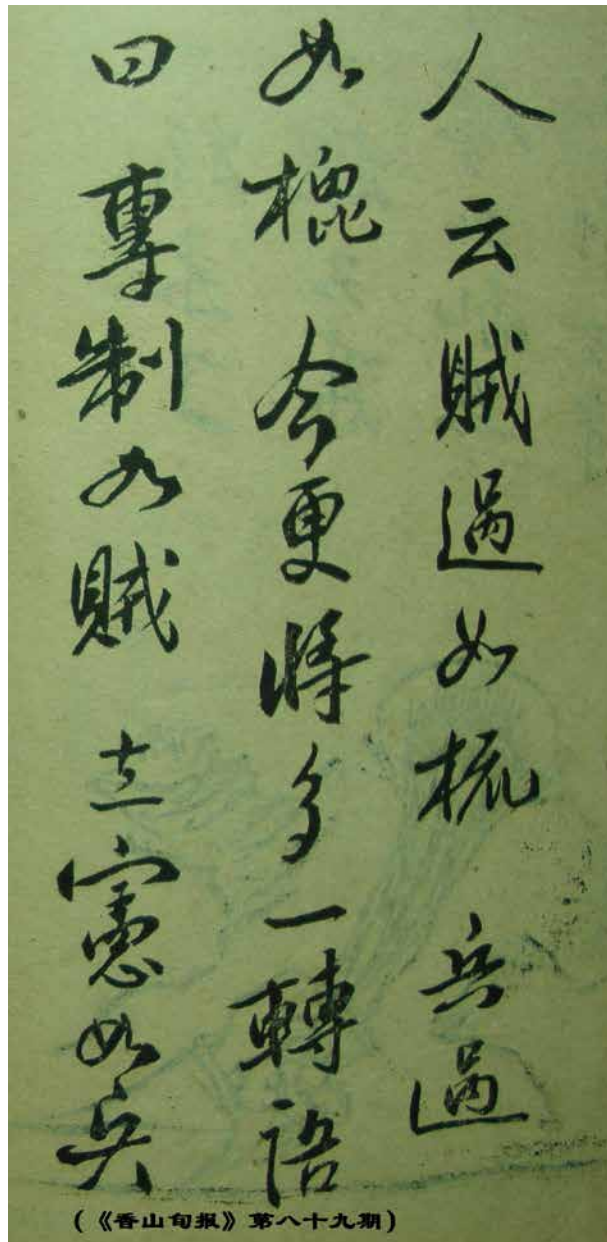 人云賊過如梳 兵過
如㮰 今更將多一轉語
曰 專制如賊 立憲如兵
(《香山旬报》第八十九期)